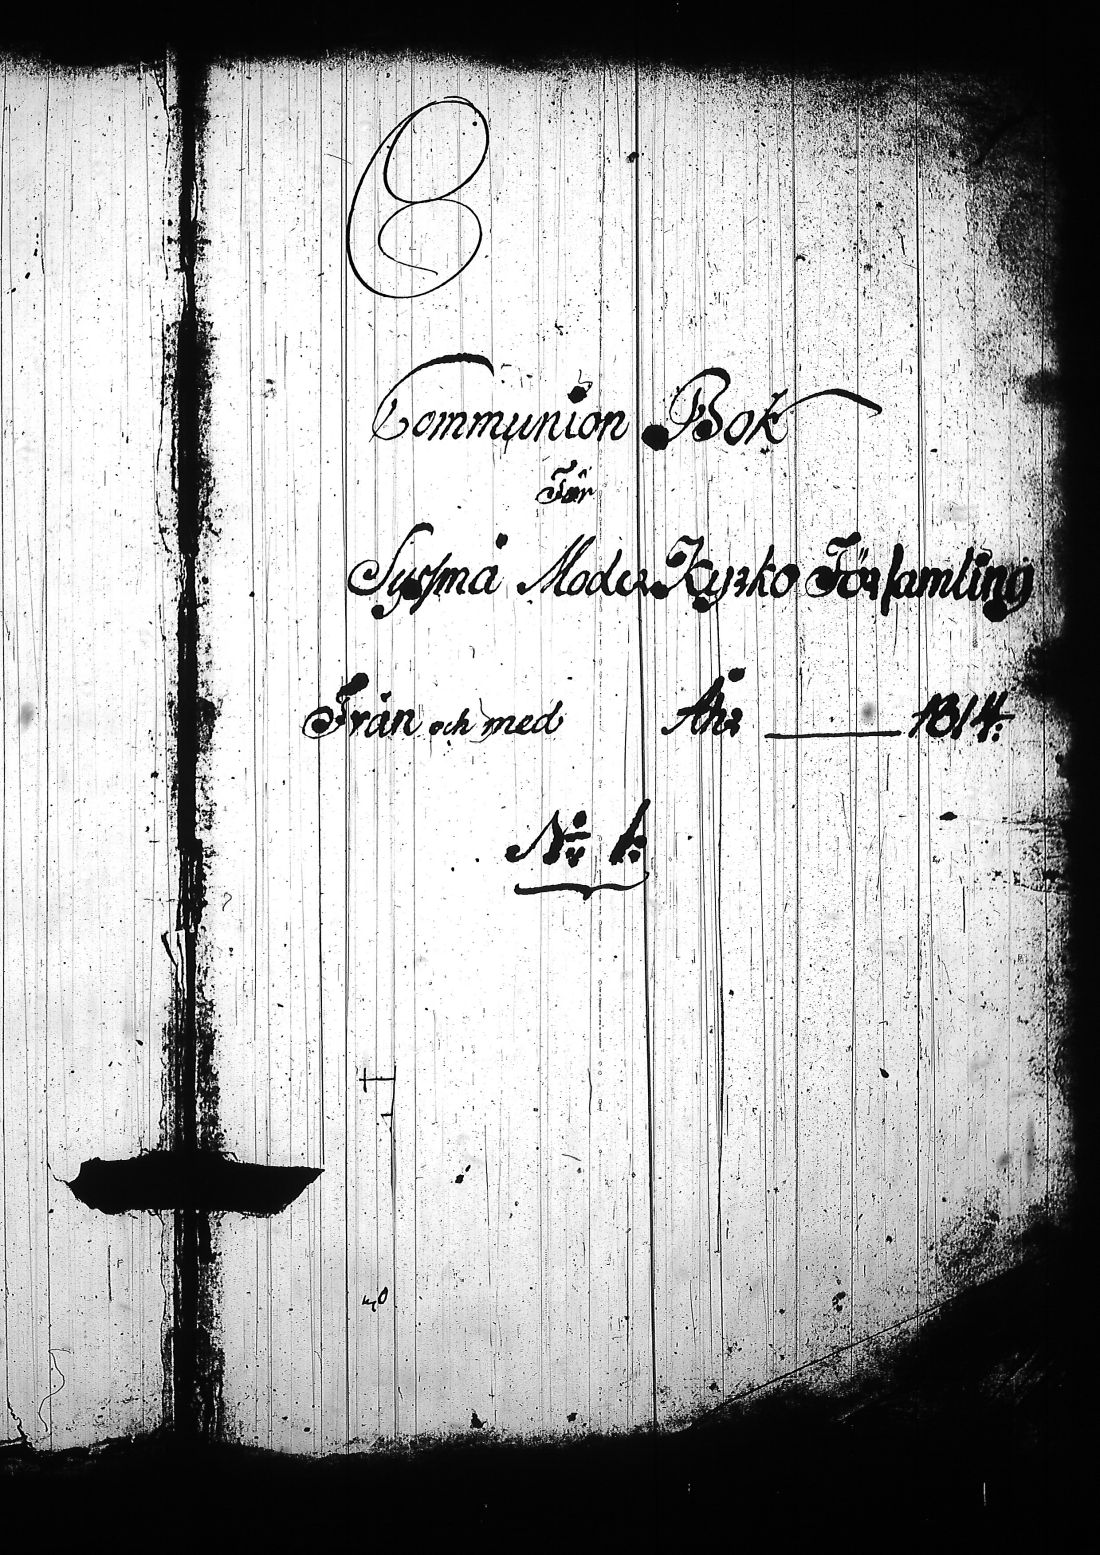 Communion Bok
För
Sysmä Moder Kyrko Församling
Från och med Åhr ——— 1814:
N:º 1: